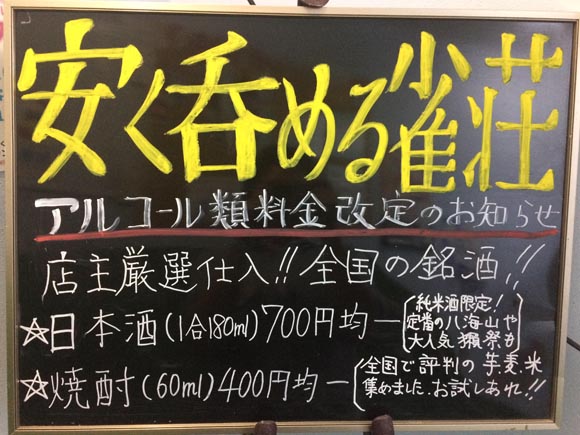 安く呑める雀荘
アルコール類料金改定のお知らせ
店主厳選仕入!!全国の銘酒!!
☆日本酒(1合180ml)700円均一
純米酒限定!
定番の八海山や
大人気獺祭も
☆焼酎(60ml)400円均一
全国で評判の芋、麦、米
集めました。お試しあれ!!